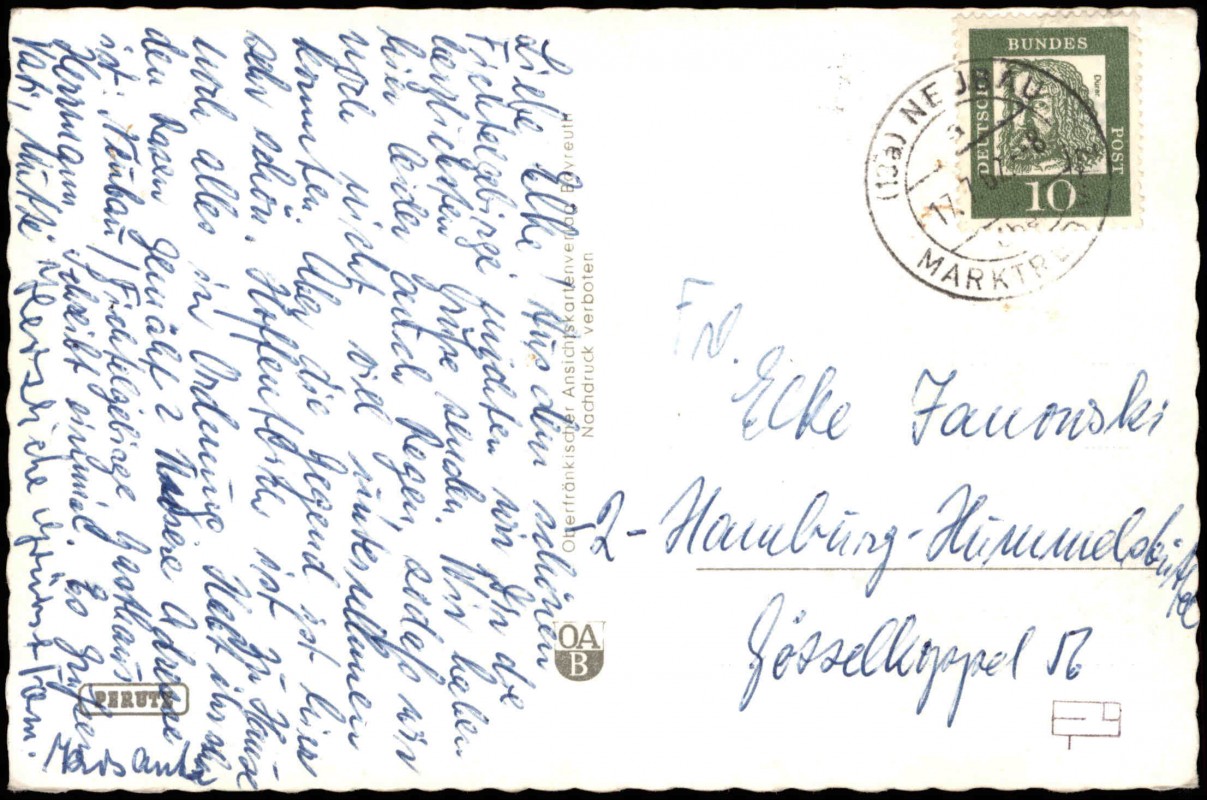 Liebe Elke! Aus dem schönen
Fichtelgebirge möchten wir Dir die
herzlichsten Grüße senden. Wir haben
hier leider auch Regen, sodaß wir
noch nicht viel unternehmen
konnten. Aber die Gegend ist hier
sehr schön. Hoffentlich ist zu Hause
noch alles in Ordnung. Habt ihr schon
den Rasen gemäht? Unsere Adresse
ist: Neubau/Fichtelgebirge Gasthaus
Herrmann. Schreibt einmal. Es grüßen
Vati, Mutti
Herzliche Grüße
Oberfränkischer Ansichtskartenverlag Bayreuth
Nachdruck verboten
OA
B
PERUTZ
DEUTSCHE
BUNDES
POST
Dürer
10
(13a) NEUBAU
MARKTRE
17.
Frl.
Elke Janowski
2-Hamburg-Hummelsbüttel
Gösselkoppel